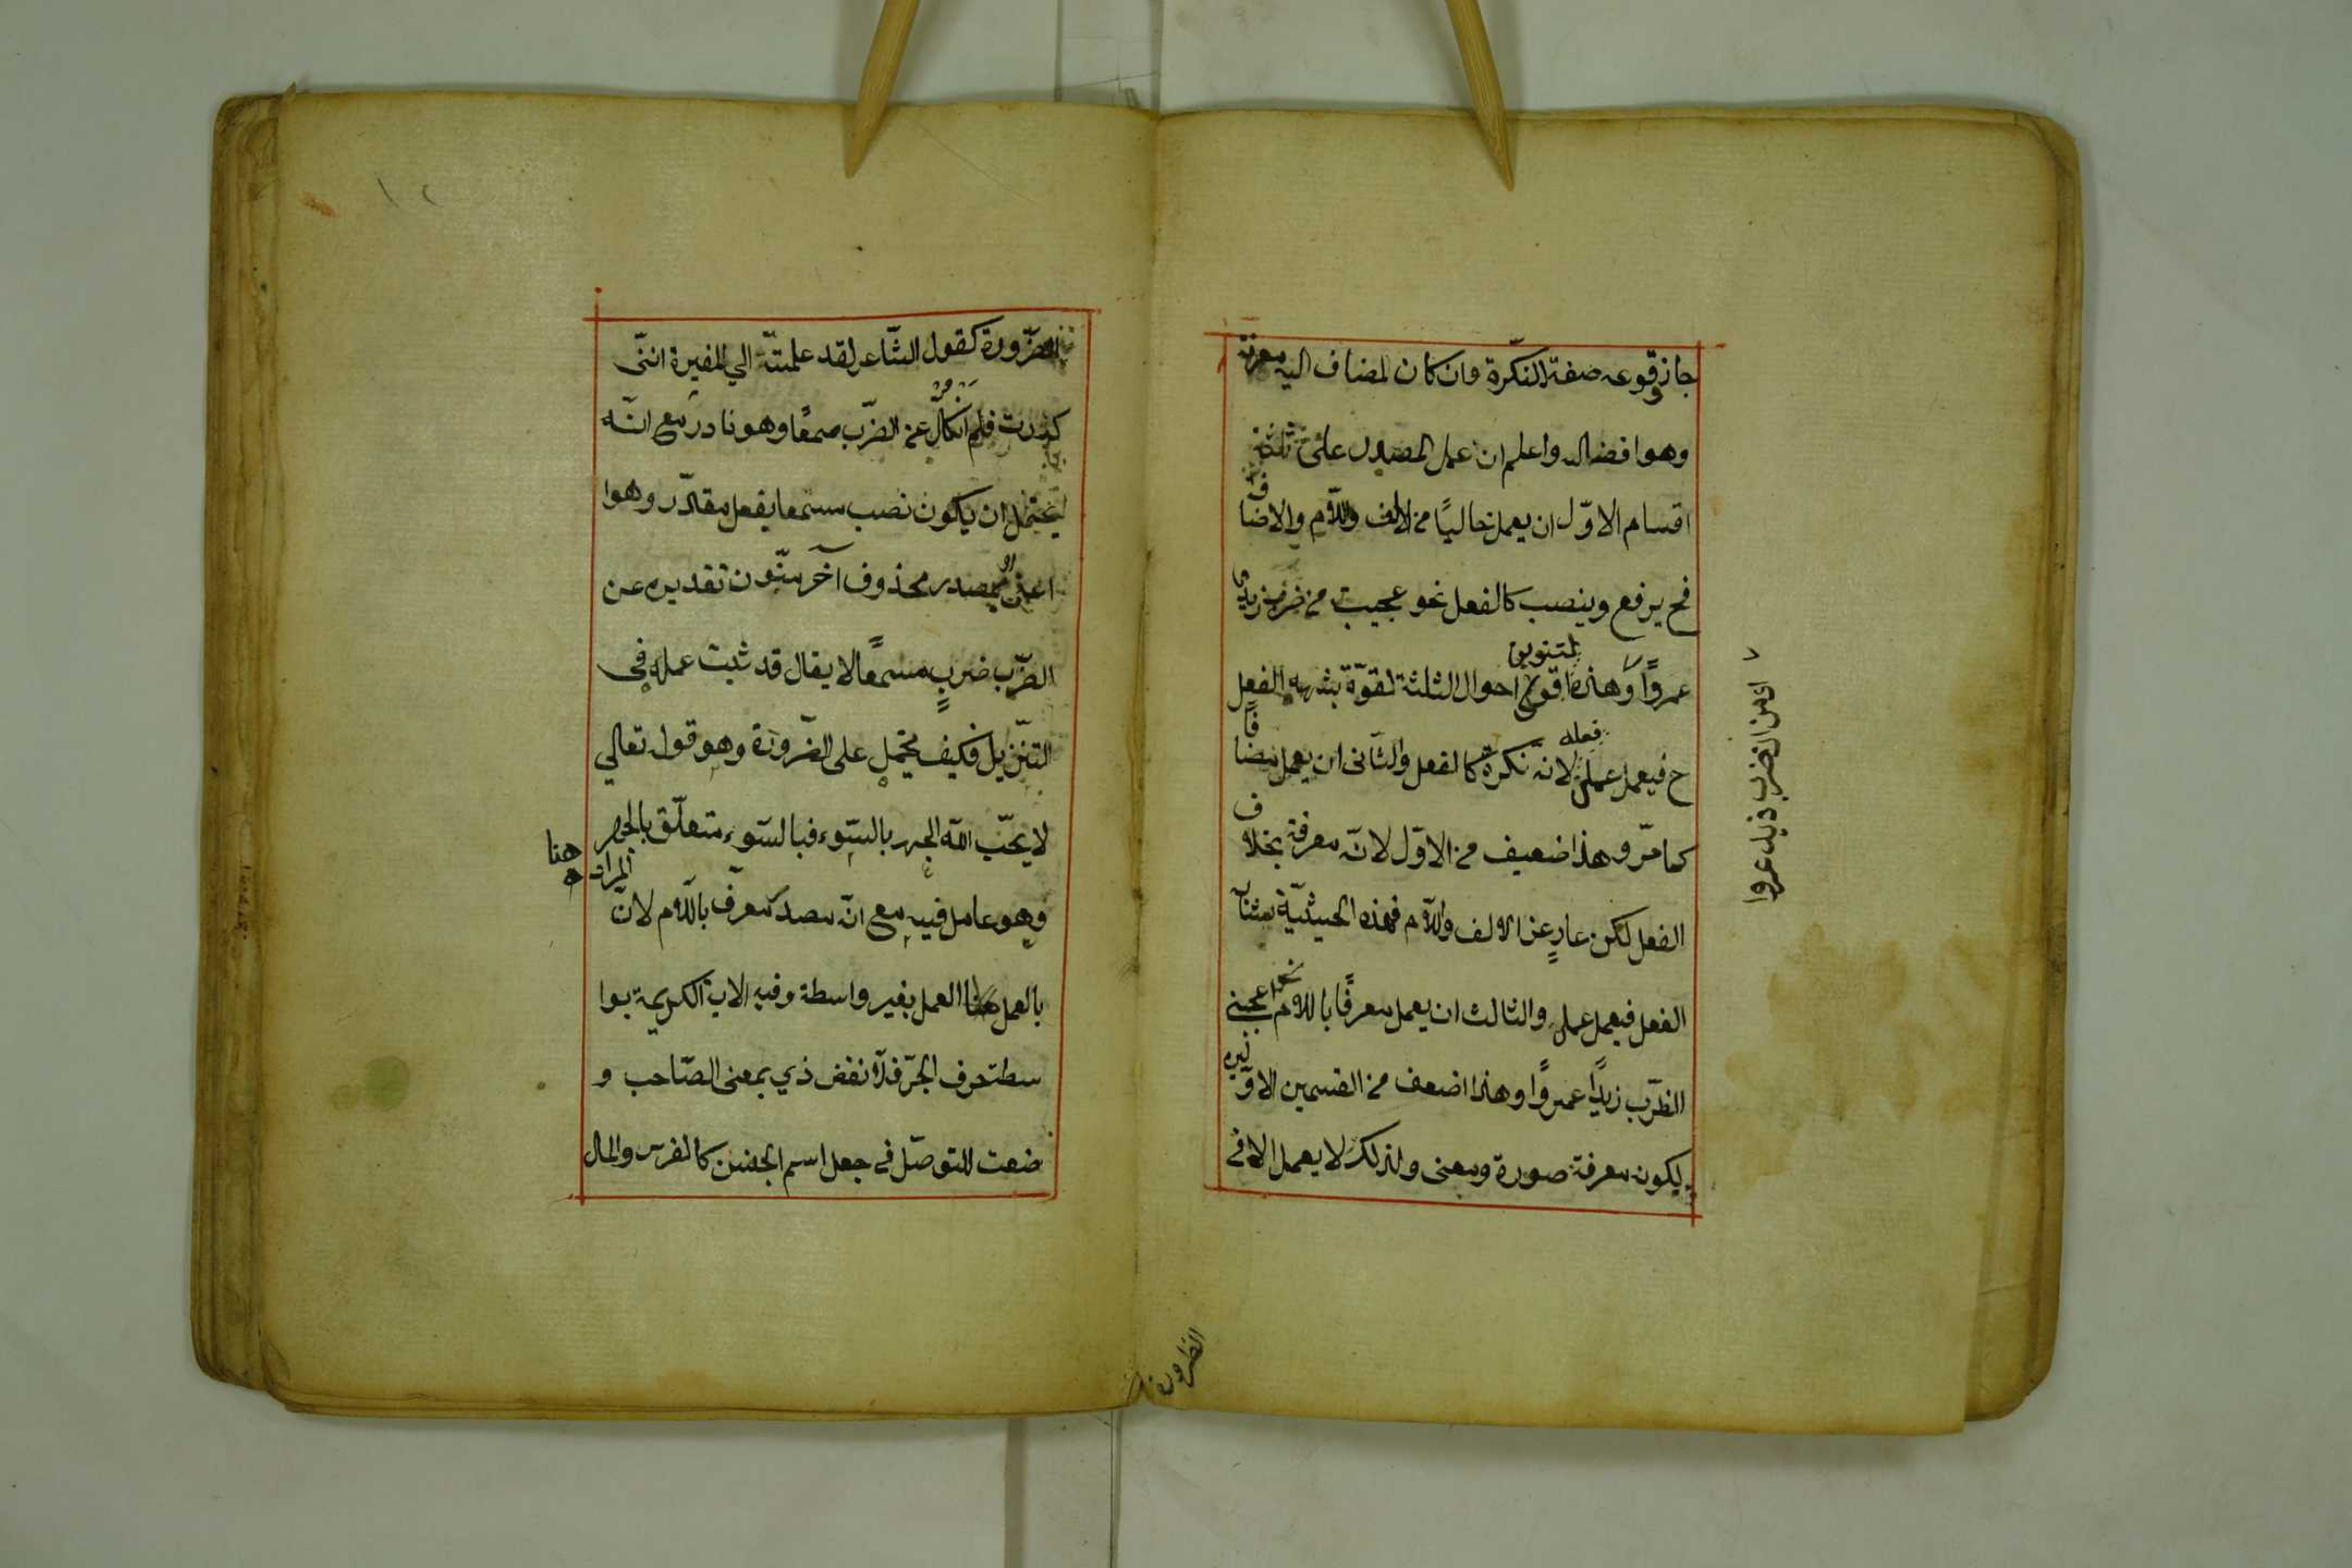 جاز وقوعه صفة النكّرة وان كان المضاف اليه معرفة
وهو افضاله واعلم ان عمل المصدر على ثلثة
اقسام الاوّل ان يعمل خاليًا من الالف واللّام والاضاف
فح يرفع وينصب كالفعل نحو عجبت من ضرب زيد
عمروًا وهذه اقوى احوال الثلثة لقوّة بشبهه الفعل
لتنوين
ح فيعمل عمل فعله لانه نكرة كالفعل والثّانى ان يعمل مضافًا
كما مرّ وهذا ضعيف من الاوّل لانّه معرفة بخلاف
الفعل لكن عارٍ عن الالف واللّام فهذه الحيثيّة
الفعل فيعمل عمله والثالث ان يعمل معرفًا باللام نحو اعجبنى
الضّرب زيدًا عمروًا وهذا اضعف من القسمين الاوّ
يكون معرفة صورة ومعنى ولذلك لا يعمل الا فى
عمروا
الضّرورة كقول الشّاعر لقد علمتّه الي المفيرة اننّى
كررت فلم انكلّ عن الضّرب مسمعًا وهو نادر مع انّه
يحتمل ان يكون نصب مسمعا بفعل مقدّر وهوا
اعنى او بمصدر محذوف آخر منّون تقديره عن
الضّرب ضربٍ مسمعًا لا يقال قد ثبت عمله فى
التنّزيل فكيف يحمل على الضّرورة وهو قوله تعالي
لا يحبّ اللّه الجهر بالسّوء فبالسّوء متعلّق بالجهر
وهو عامل فيه مع انّه مصدر معرّف باللّام لانّ
المراد هنا
بالعمل العمل بغير واسطة وفيه الاية الكريمة بوا
سطة حرف الجرّ فلا نقض ذي بمعنى الصّاحب و
ضعت للتوصّل فى جعل اسم الجنس كالفرس والمال